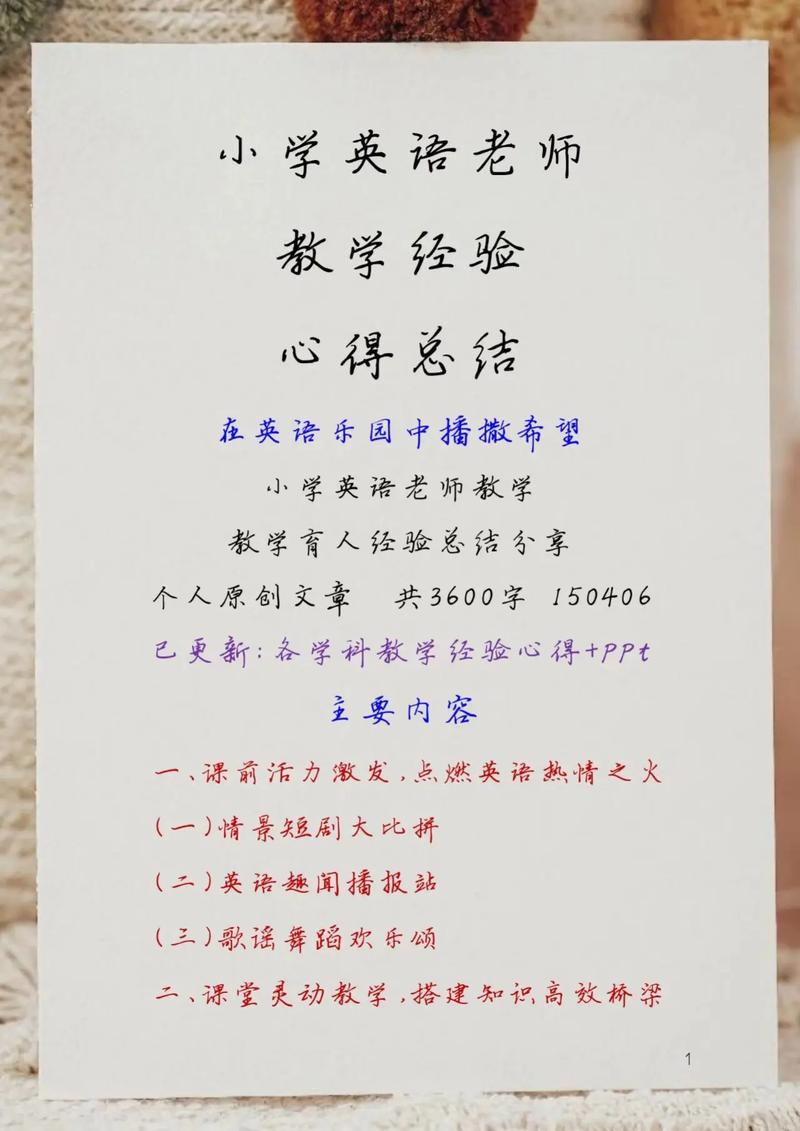 小学英语老师
教学经验
心得总结
在英语乐园中播撒希望
小学英语老师教学
教学育人经验总结分享
个人原创文章 共3600字 150406
已更新:各学科教学经验心得+ppt
主要内容
一、课前活力激发,点燃英语热情之火
(一)情景短剧大比拼
(二)英语趣闻播报站
(三)歌谣舞蹈欢乐颂
二、课堂灵动教学,搭建知识高效桥梁
1